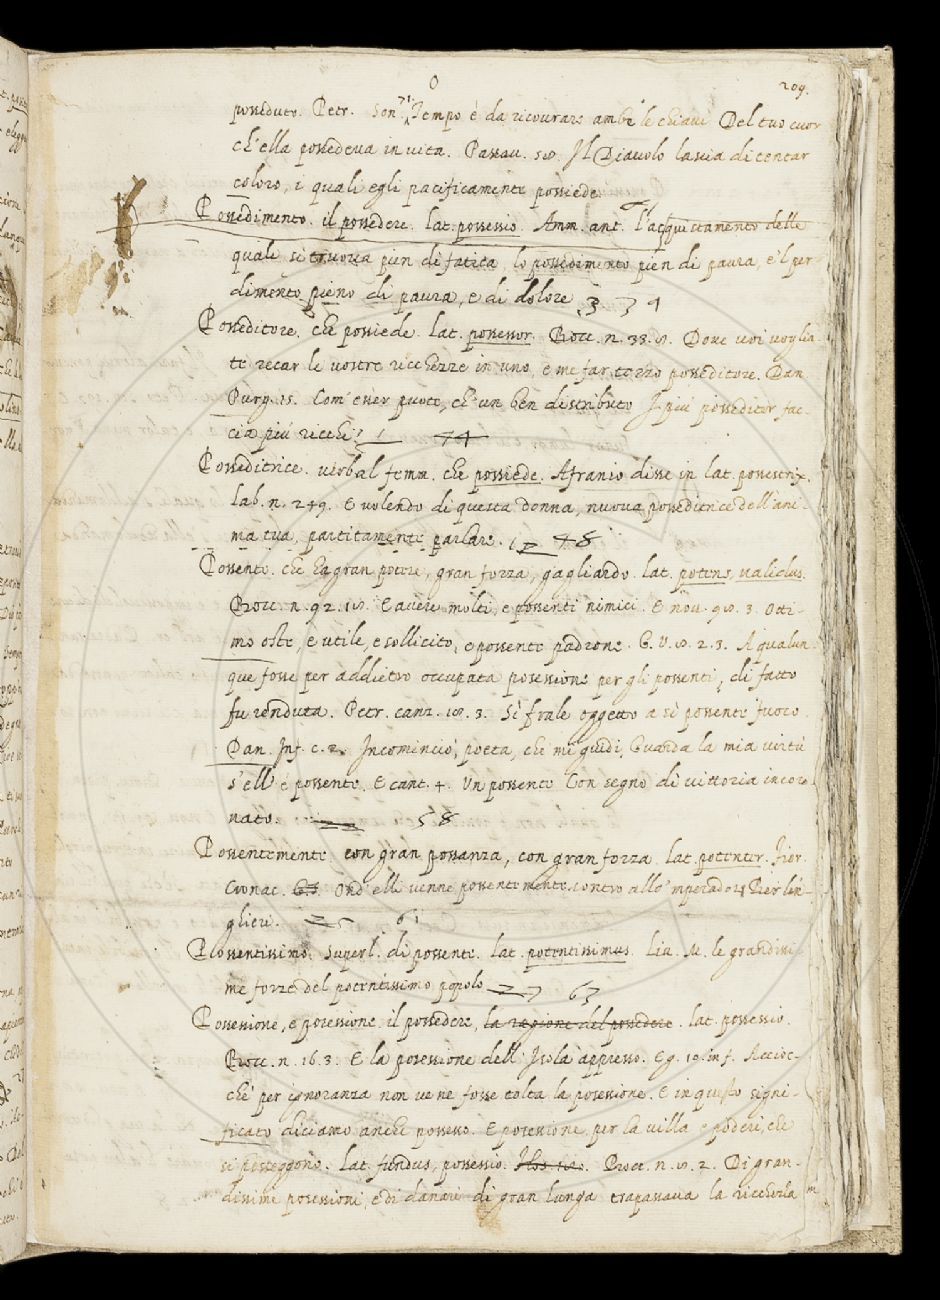 O
209.
posseduto. Petr. Son. 71. Tempo è da ricourare ambe le chiaui Del tuo cuor
ch'ella possedeua in uita. Passau. 50. Il Diauolo lascia di tentar
coloro, i quali egli pacificamente possiede.
Possedimento. il possedere. lat. possessio. Amm. ant. l'acquistamento delle
quali si truoua pien di fatica, lo possedimento pien di paura, e 'l per-
dimento pieno di paura, e di dolore 3 39
Posseditore. che possiede. lat. possessor. Bocc. n. 33. 10. Doue uoi voglia-
te recar le uostre ricchezze in uno, e me far terzo posseditore. Dan.
Purg. 15. Com' esser puote, ch' un ben distributo I più posseditor fac-
cia più ricchi 11 44
Posseditrice. uerbal femm. che possiede. Afranio disse in lat. possestrix.
lab. n. 249. E uolendo di questa donna, nuoua posseditrice dell'ani-
ma tua, partitamente parlare. 12 48
Possente. che ha gran potere, gran forza, gagliardo. lat. potens, ualidus.
Bocc. n. 92. 10. E auere molti, e possenti nimici. E nou. 90. 3. Otti-
mo oste, e utile, e sollicito, e possente padrone. G. V. 10. 2. 3. A qualun-
que fosse per addietro occupata possessione per gli possenti, di fatto
fu renduta. Petr. canz. 10. 3. Sì frale oggetto a sì possente fuoco.
Dan. Inf. c. 2. Incominciò, poeta, che mi guidi, Guarda la mia uirtù
s'ell' è possente. E cant. 4. Un possente Con segno di uittoria incoro-
nato. 58
Possentemente con gran possanza, con gran forza. lat. potenter. Fior.
Cronac. Ond' elli uenne possentemente contro allo 'mperador Berlin-
ghieri. 25 61
Possentissimo. Superl. di possente. lat. potentissimus. Liu. M. le grandissi-
me forze del potentissimo popolo 27 63
Possessione, e posessione. il possedere, la ragione del possedere. lat. possessio.
Bocc. n. 16. 3. E la posessione dell' Isola appresso. E g. 10. in f. Accioc-
chè per ignoranza non ue ne fosse tolta la posessione. E in questo signi-
ficato diciamo anche possesso. E posessione, per la uilla e poderi, che
si posseggono. Lat. fundus, possessio. Bocc. n. 10. 2. Di gran-
dissime posessioni, e di danari di gran lunga trapassaua la ricchezza